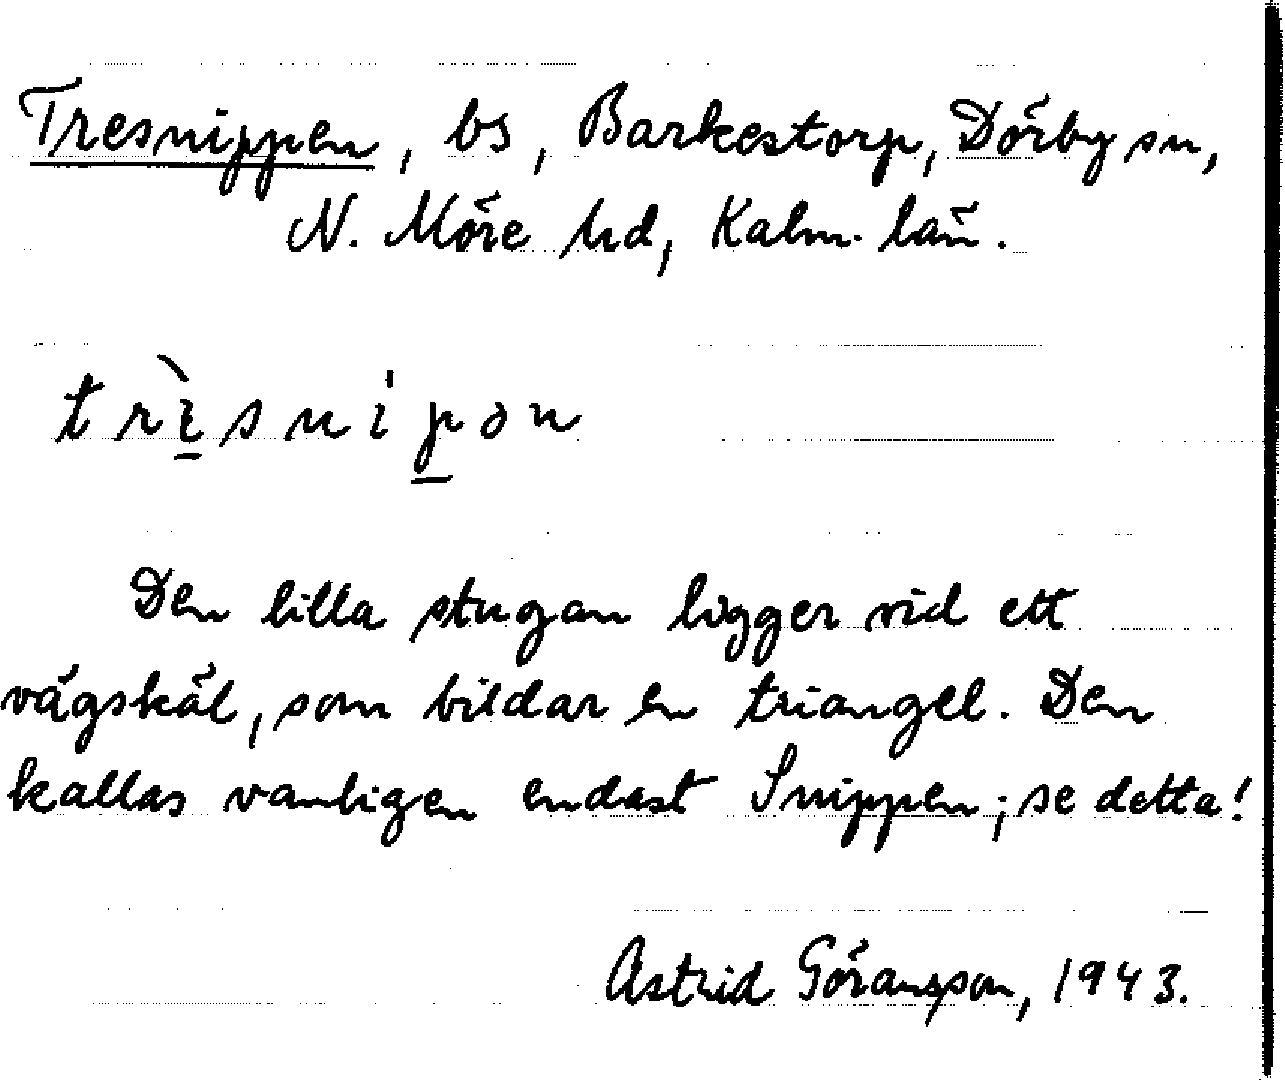 Tresnippen, bs, Barkestorp, Dörby sn,
N. Möre hd, Kalm. län.
trìsnipən
Den lilla stugan ligger vid ett
vägskäl, som bildar en triangel. Den
kallas vanligen endast Snippen; se detta!
Astrid Göransson, 1943.